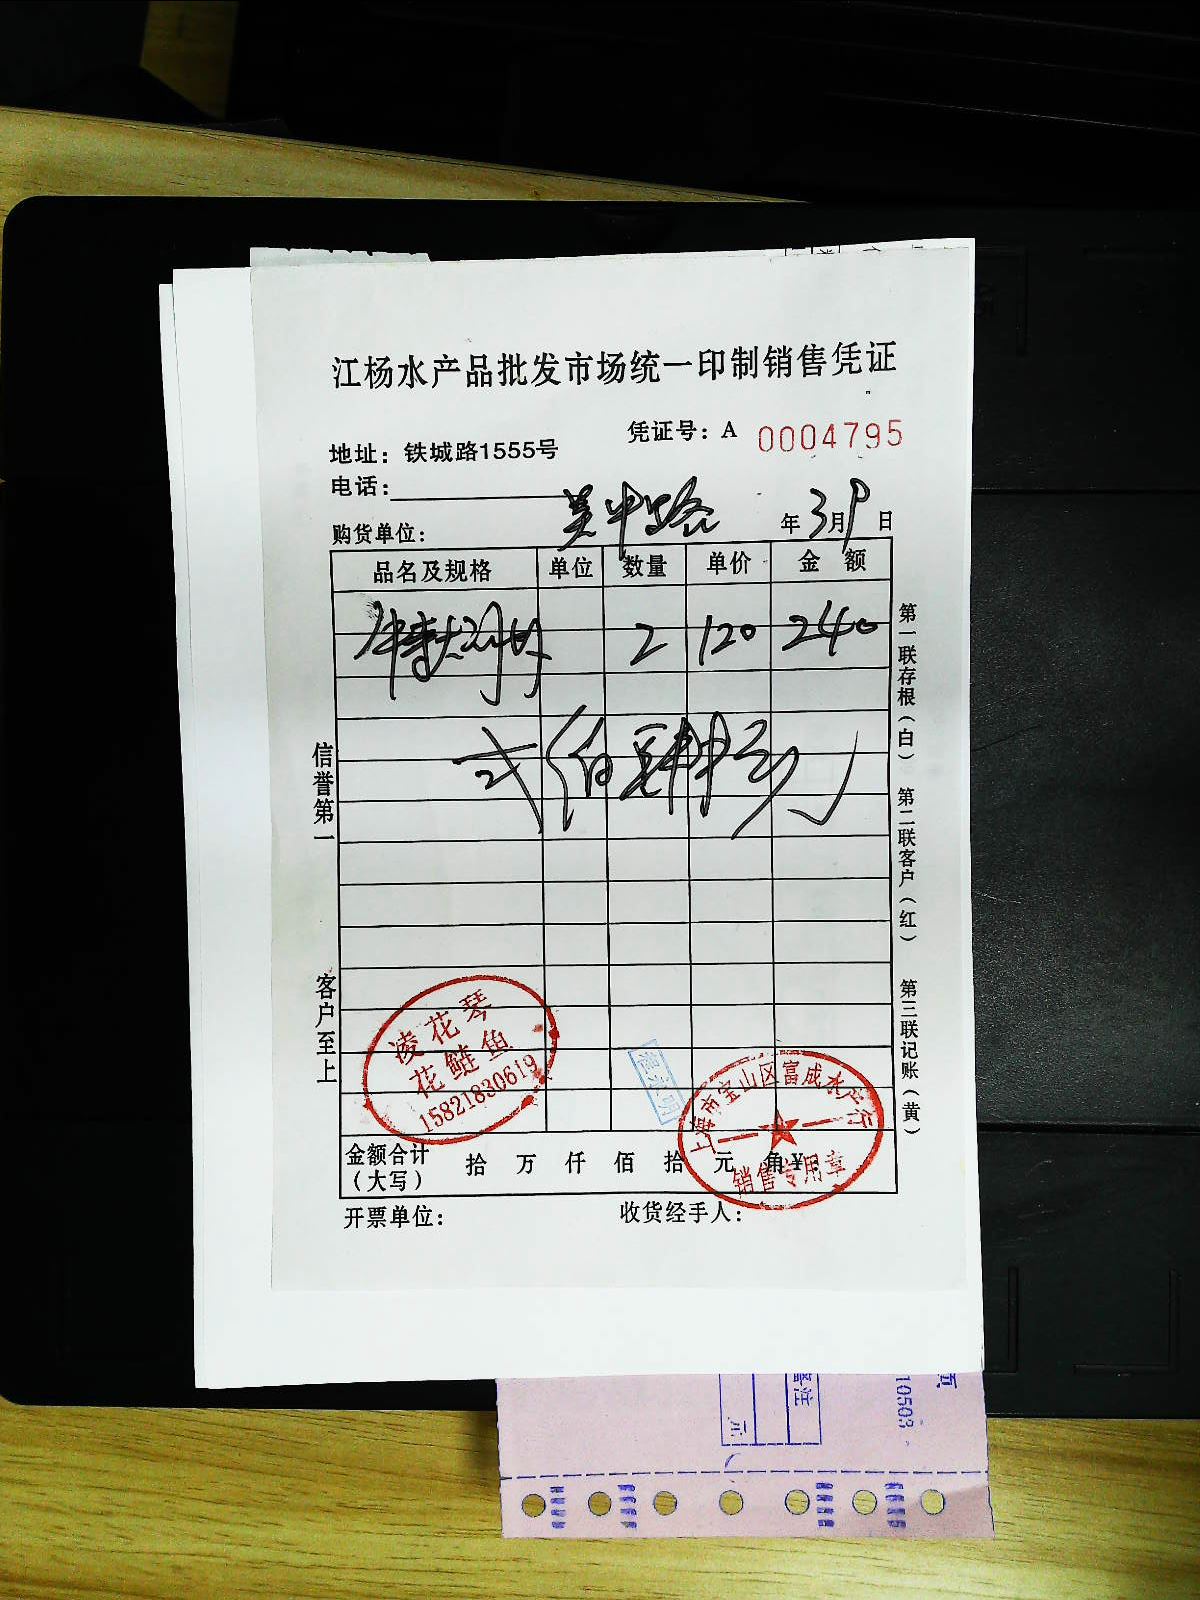 江杨水产品批发市场统一印制销售凭证
凭证号：A 0004795
地址：铁城路1555号
电话：
购货单位： 吴中路 年 3月9日
品名及规格 单位 数量 单价 金额
2 120 240
弍佰肆拾元
信誉第一
客户至上
第一联存根（白）
第二联客户（红）
第三联记账（黄）
凌花琴
花鲢鱼
15821830619
上海市宝山区富成水产行
销售专用章
金额合计（大写） 拾 万 仟 佰 拾 元 角 ¥：
开票单位： 收货经手人：
备注
示
页
10503